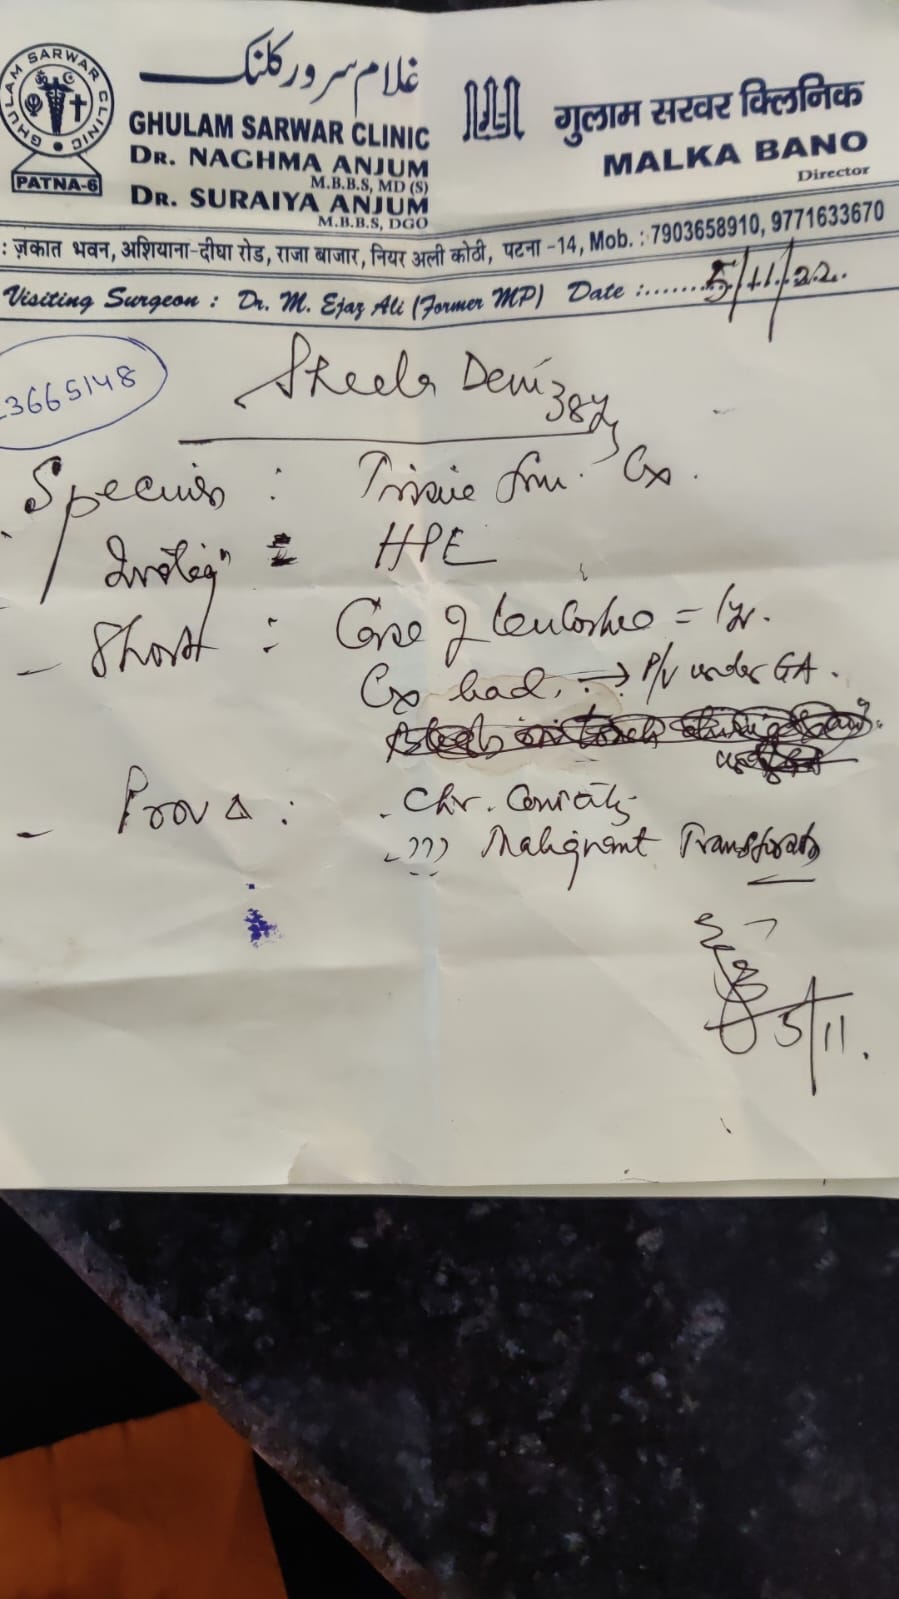 GHULAM SARWAR CLINIC
PATNA-6
غلام سرور کلنک
GHULAM SARWAR CLINIC
DR. NAGHMA ANJUM
M.B.B.S, MD (S)
DR. SURAIYA ANJUM
M.B.B.S, DGO
गुलाम सरवर क्लिनिक
MALKA BANO
Director
: ज़कात भवन, अशियाना-दीघा रोड, राजा बाजार, नियर अली कोठी, पटना -14, Mob. : 7903658910, 9771633670
Visiting Surgeon : Dr. M. Ejaz Ali (Former MP) Date :......5/11/22.
3665148
Sheela Devi 38y
Specimen : Tissue from Cx.
Investign : HPE
- Short : Case of leucorrhea = 1yr.
Cx bad. → P/V under GA.
- Prov Δ : . Chr. Cervicitis
- ??? Malignant Transformatn
5/11.